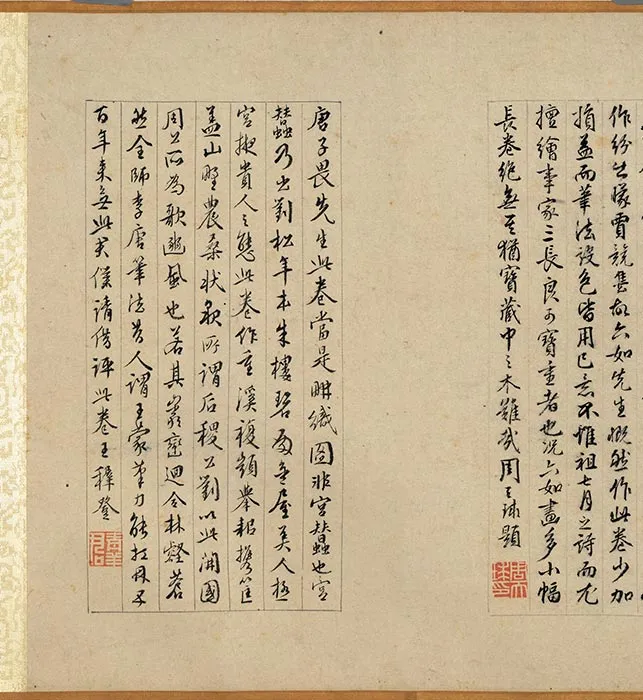 作紛出隊賈競集故六如先生慨然作此卷少加
損益而筆法設色皆用己意不惟祖七月之詩而尤
擅繪事家三長良可寶重者也況六如畫多小幅
長卷絕無至猶寶藏中之木難哉周天球題
唐子畏先生此卷當是畊織圖非宮蠶也宮
蠶乃出劉松年本朱樓碧美人極
宮掖貴人之態此卷作重溪複嶺舉耜攜筐
盖山野農桑狀所謂后稷公劉以此開國
周公所為歌豳風也若其巖巒迴合林壑蒼
然全師李唐筆法昔人謂王蒙筆力能扛鼎五
百年來無此君僕請借評此卷王穉登